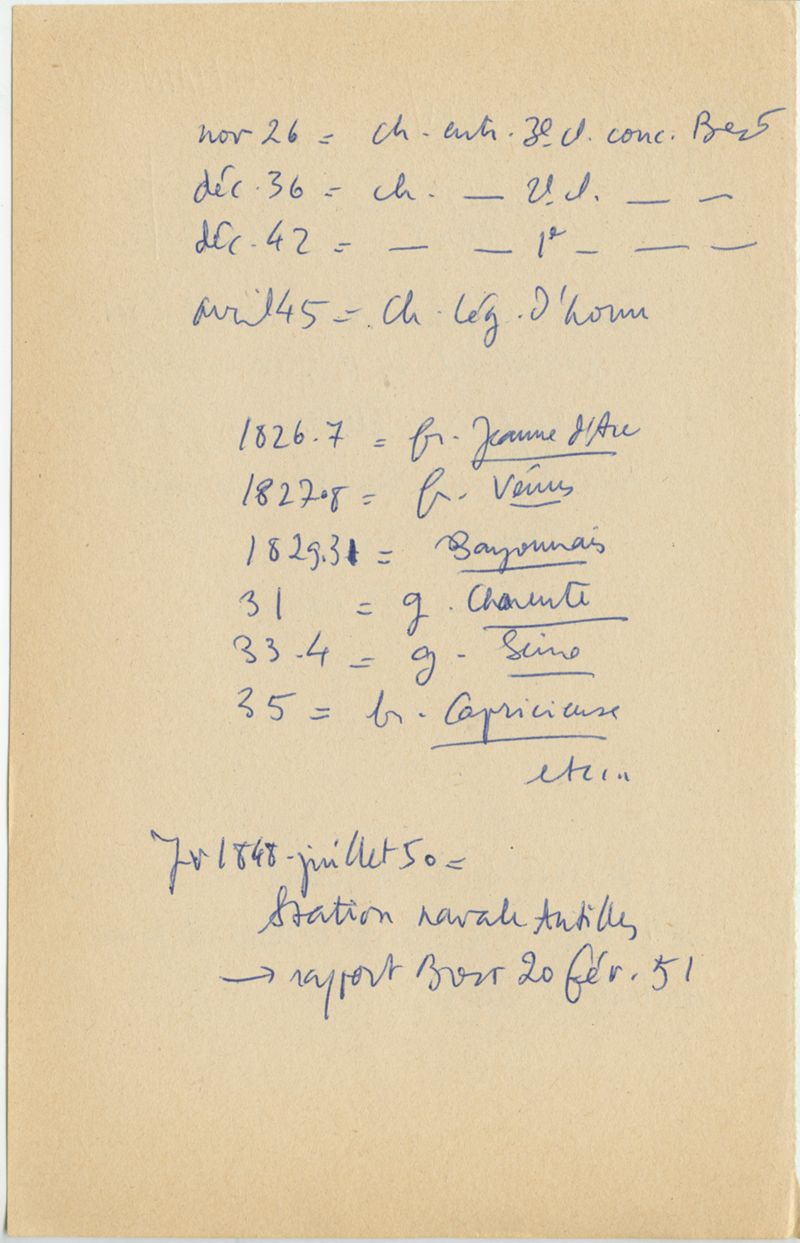 nov 26 = ch. entr. 3e cl. conc. Brest
déc. 36 = ch. — 2e cl. — —
déc. 42 = — — 1e — — —
avril 45 = ch. Lég. d'honn
1826.7 = fr. Jeanne d'Arc
1827.8 = fr. Vénus
1829.31 = Bayonnais
31 = g. Charente
33.4 = g. Seine
35 = br. Capricieuse
etc...
Jv 1848 - juillet 50 =
Station navale Antilles
→ rapport Brest 20 fév. 51